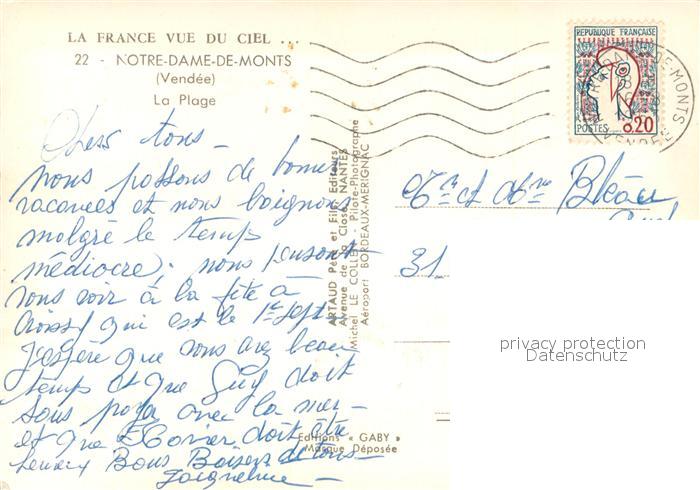 LA FRANCE VUE DU CIEL ...
22 - NOTRE-DAME-DE-MONTS
(Vendée)
La Plage
Chers tous -
nous passons de bonnes
vacances et nous baignons
malgré le temps
médiocre; nous pensons
vous voir à la fête à
Croissy qui est le 1er sept.
J'espère que vous avez beau
temps et que Guy doit
sous
avec la mer -
et que
doit être
heureux Bons Baisers de tous -
Jacqueline -
ARTAUD Père et Fils, Editeurs
Avenue de la Close - NANTES
Michel LE COLLET - Pilote-Photographe
Aéroport BORDEAUX-MERIGNAC
Editions « GABY »
Marque Déposée
REPUBLIQUE FRANÇAISE
POSTES 0,20
DE-MONTS
VENDEE
et
31
privacy protection
Datenschutz